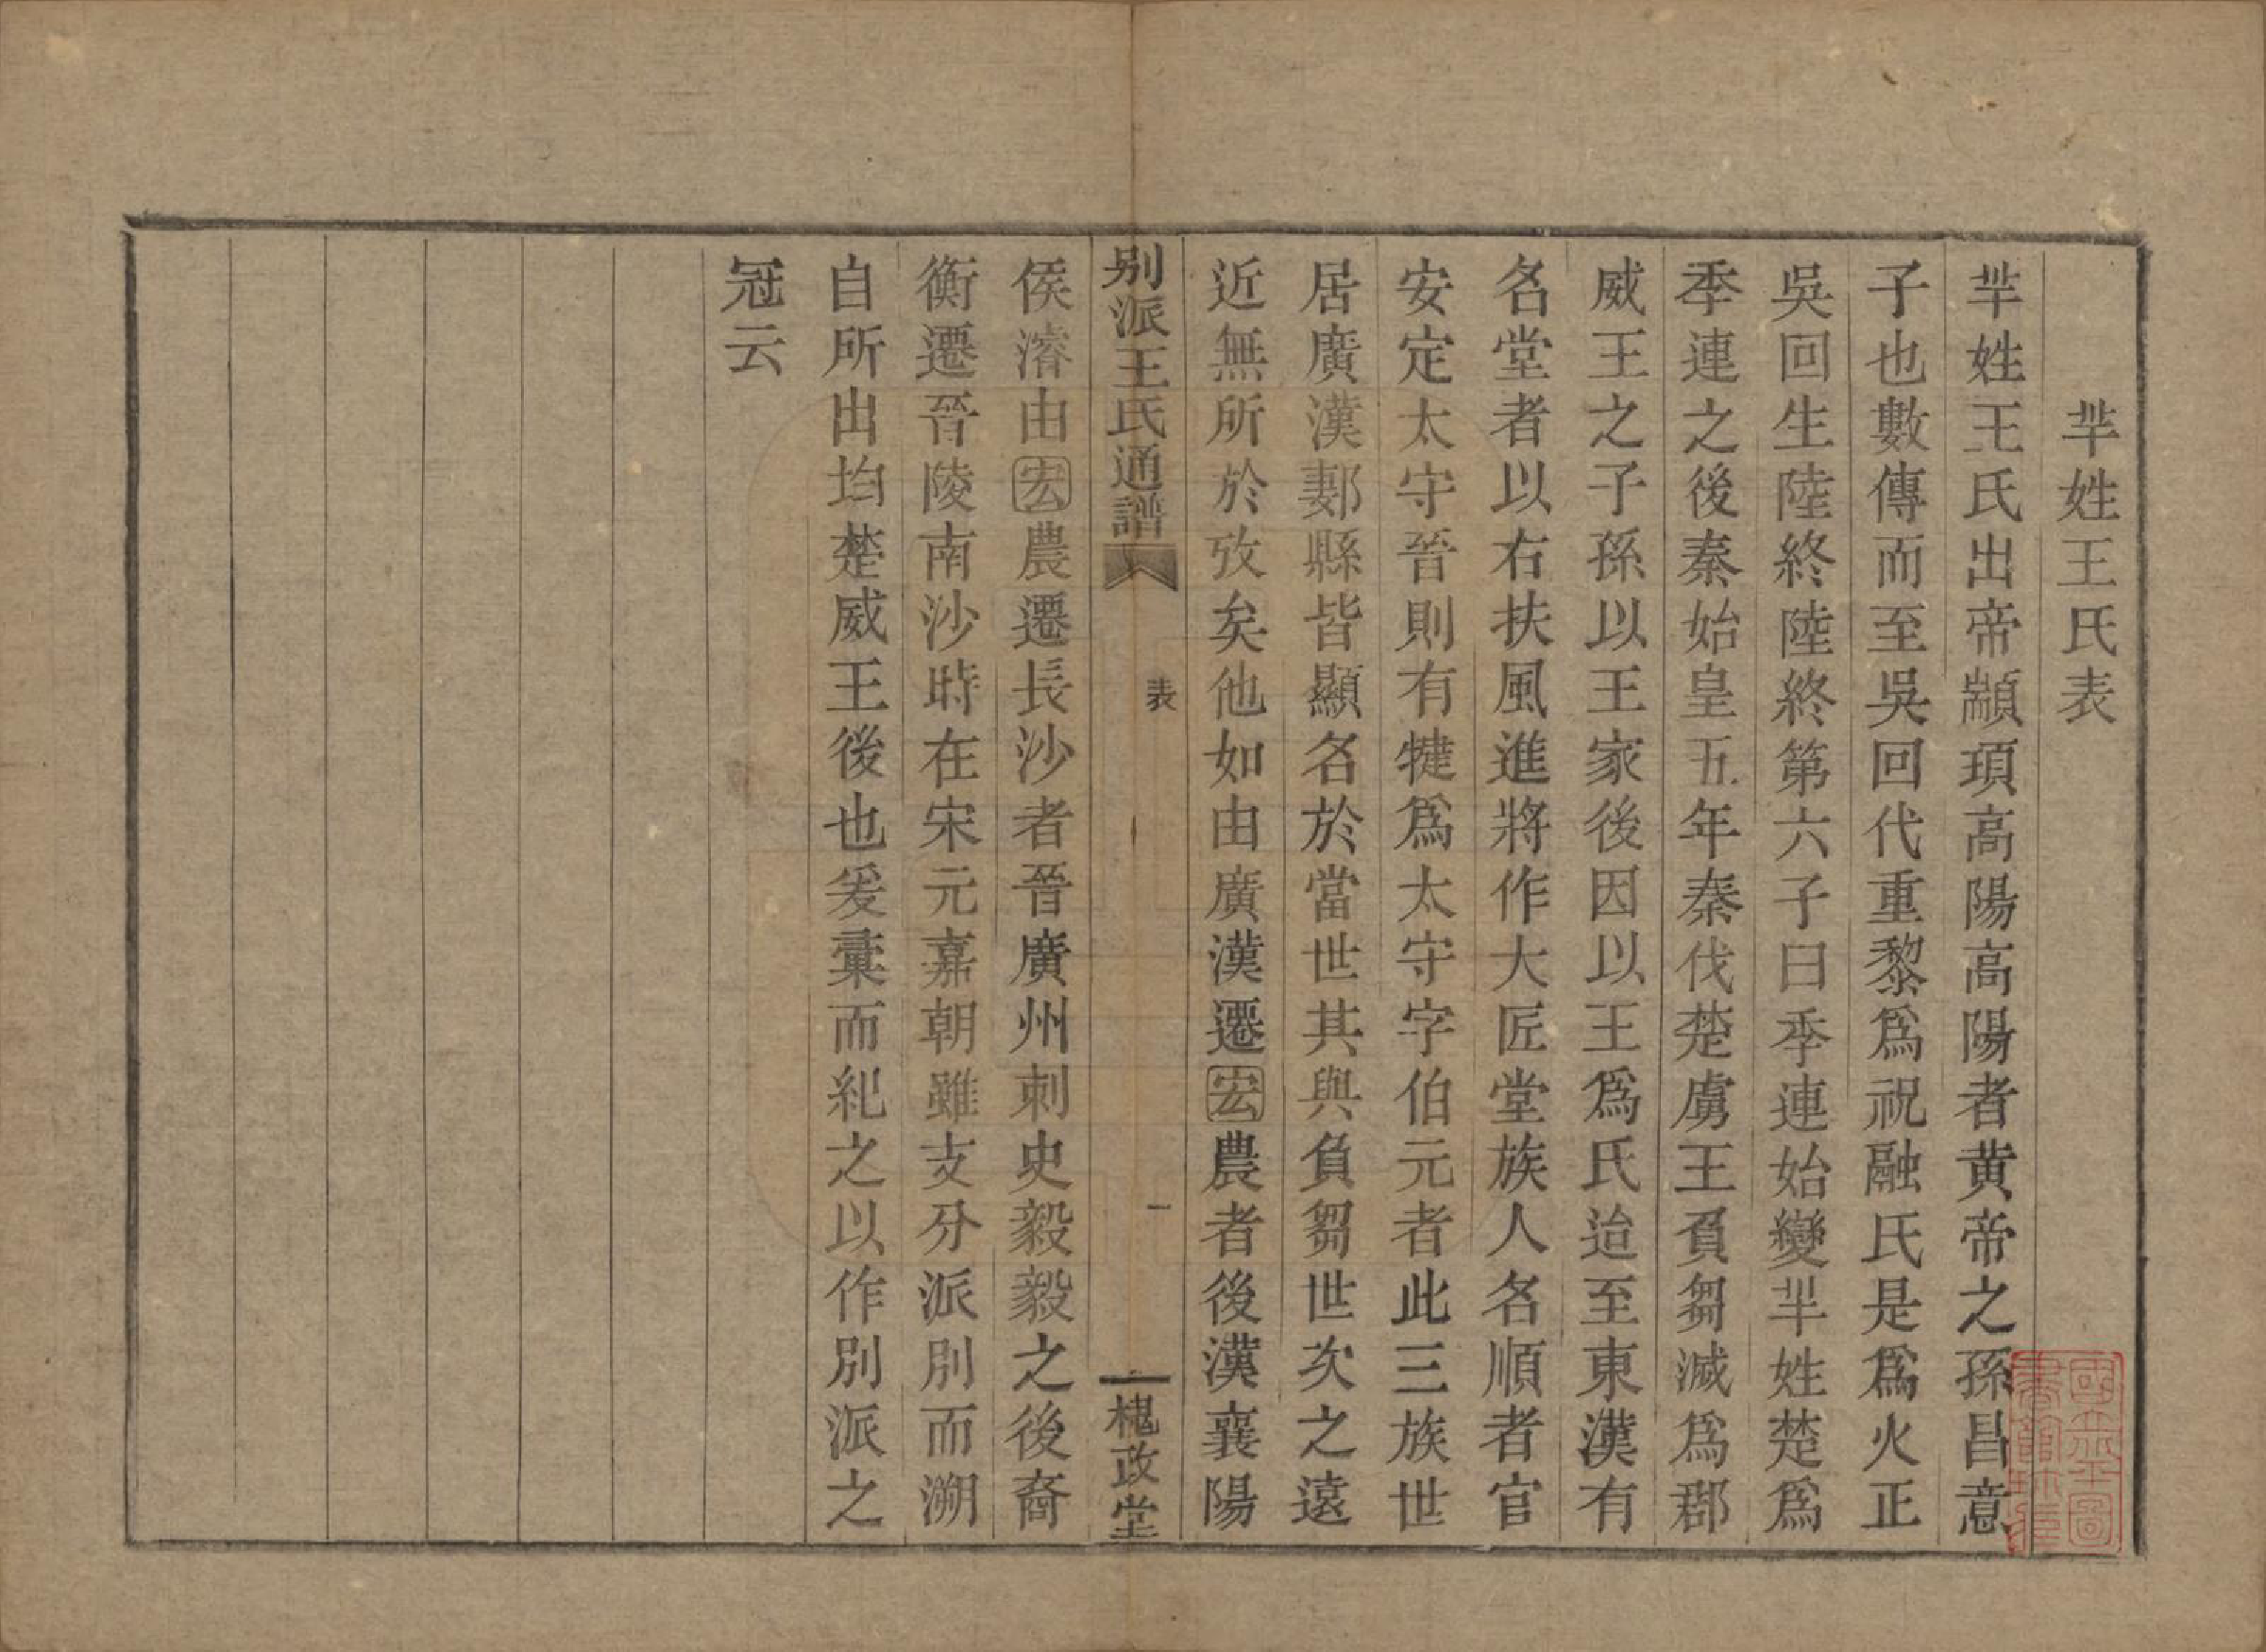 芈姓王氏表
芈姓王氏出帝顓頊高陽高陽者黄帝之孫昌意
子也數傳而至吳回代重黎爲祝融氏是爲火正
吳回生陸終陸終第六子曰季連始變芈姓楚爲
季連之後秦始皇五年秦伐楚虜王負芻滅爲郡
威王之子孫以王家後因以王爲氏迨至東漢有
名堂者以右扶風進將作大匠堂族人名順者官
安定太守晉則有犍爲太守字伯元者此三族世
居廣漢郪縣皆顯名於當世其與負芻世次之遠
近無所於攷矣他如由廣漢遷宏農者後漢襄陽
别派王氏通譜 表 一 槐政堂
侯濬由宏農遷長沙者晉廣州刺史毅毅之後裔
衡遷晉陵南沙時在宋元嘉朝雖支分派別而溯
自所出均楚威王後也爰彙而紀之以作別派之
冠云
國立北平圖
書館珍藏